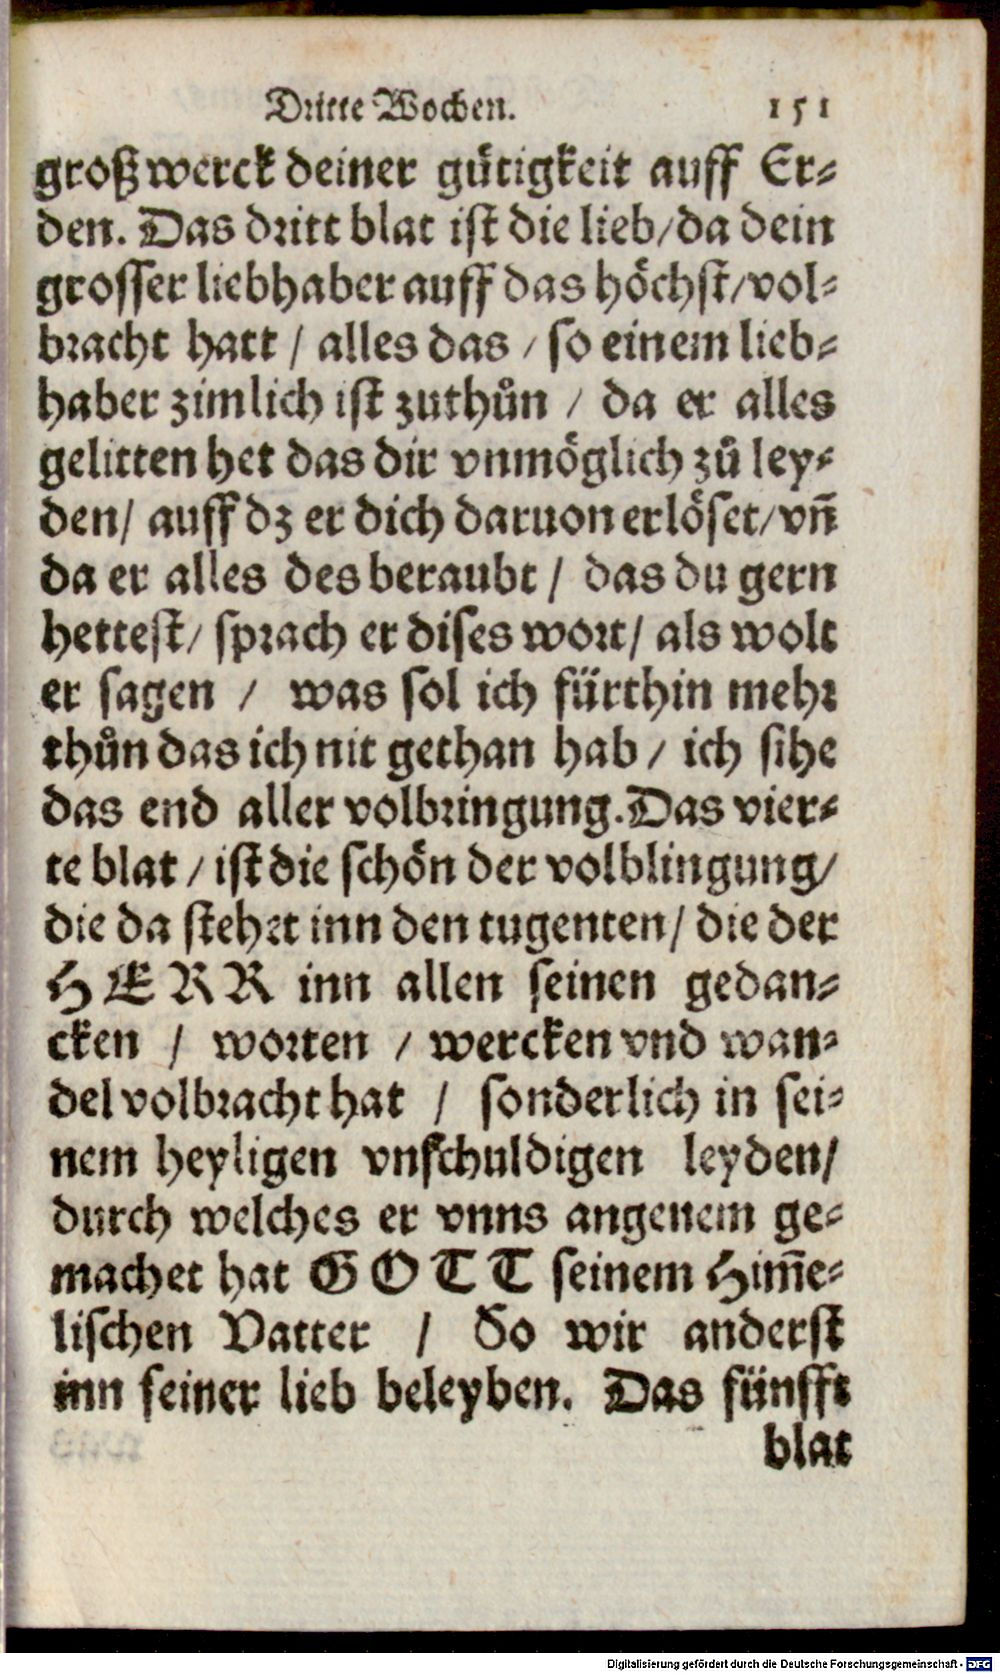 Dritte Wochen. 151
groß werck deiner gůtigkeit auff Er-
den. Das dritt blat ist die lieb/da dein
grosser liebhaber auff das höchst/vol-
bracht hatt / alles das / so einem lieb-
haber zimlich ist zuthůn / da er alles
gelitten het das dir vnmöglich zů ley-
den/ auff dz er dich daruon erlöset/vñ
da er alles des beraubt / das du gern
hettest/ sprach er dises wort/ als wolt
er sagen / was sol ich fürthin mehr
thůn das ich nit gethan hab / ich sihe
das end aller volbringung. Das vier-
te blat / ist die schön der volblingung/
die da stehrt inn den tugenten/ die der
HERR inn allen seinen gedan-
cken / worten / wercken vnd wan-
del volbracht hat / sonderlich in sei-
nem heyligen vnschuldigen leyden/
durch welches er vnns angenem ge-
machet hat GOTT seinem Him̃e-
lischen Vatter / So wir anderst
inn seiner lieb beleyben. Das fünfft
blat
Digitalisierung gefördert durch die Deutsche Forschungsgemeinschaft - DFG